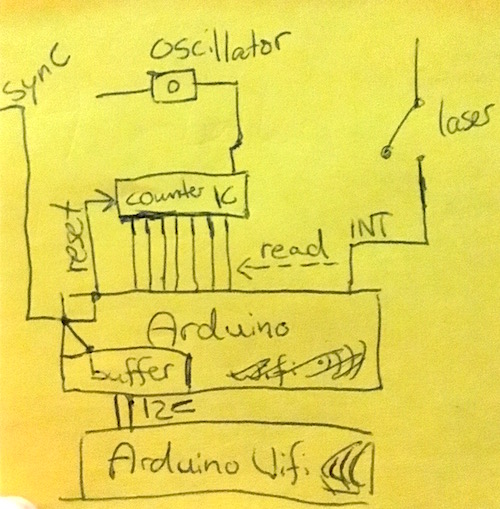 Oscillator
Sync
laser
counter IC
reset
INT
read
Arduino
buffer
I2C
Arduino Wifi